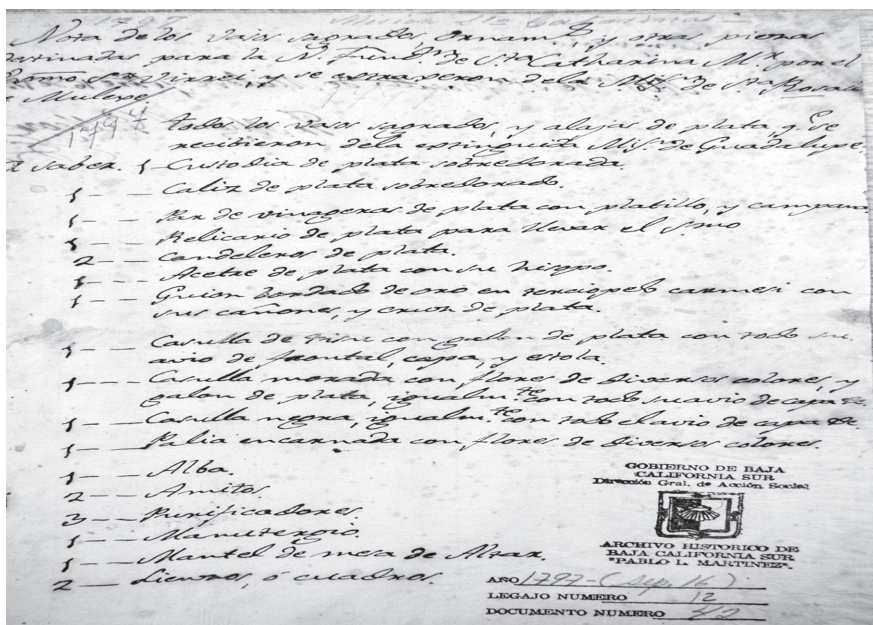 1797 Mision Sta Catharina
Nota de los Vasos sagrados, Ornam.tos y otras piezas
destinadas para la N. Fund.on de Sta Catharina M.r por el
Exmo Sor Virrei, y se extrageron dela Mis.n de Sta Rosalia
de Mulege
1797
todos los vasos sagrados, y alajas de plata, q.e se
recibieron dela extinguita Mis.n de Guadalupe.
A saber. 1 Custodia de plata sobredorada.
1 -- Caliz de plata sobredorado.
1 -- Par de vinageras de plata con platillo, y campana
1 -- Relicario de plata para llevar el S.mo
2 -- Candeleros de plata.
1 -- Acetre de plata con su hisopo.
1 -- Guion bordado de oro en terciopelo carmesi con
sus cañones, y cruz de plata.
1 -- Casulla de tisu con galon de plata con todo su
avio de frontal, capa, y estola.
1 -- Casulla morada con flores de diversos colores, y
galon de plata, igualm.te con todo su avio de capa &c
1 -- Casulla negra, igualm.te con todo el avio de capa &c
1 -- Palia encarnada con flores de diversos colores.
1 -- Alba.
2 -- Amitos.
3 -- Purificadores.
1 -- Manutergio.
1 -- Mantel de mesa de Altar.
2 -- Lienzos, ó cuadros.
GOBIERNO DE BAJA
CALIFORNIA SUR
Dirección Gral. de Acción Social
ARCHIVO HISTORICO DE
BAJA CALIFORNIA SUR
"PABLO L. MARTINEZ".
AÑO 1797-(Sep. 16)
LEGAJO NUMERO 12
DOCUMENTO NUMERO